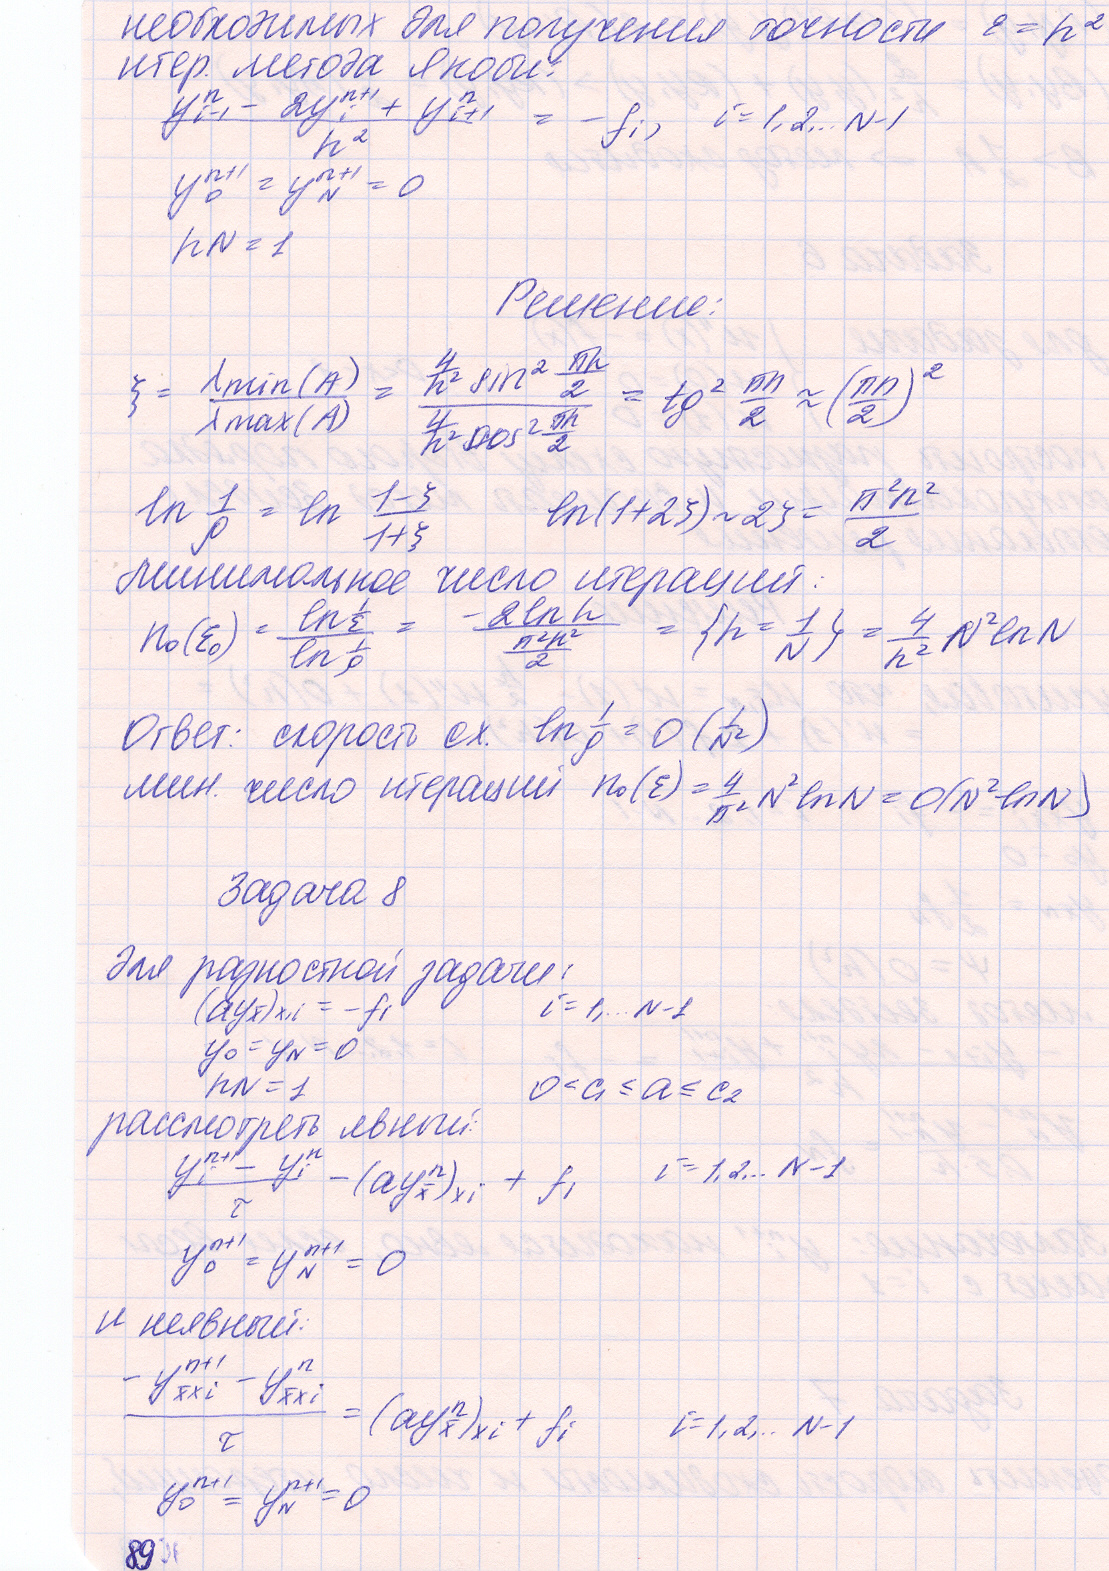 необходимых для получения точности ε = h²
итер. метода Якоби:
(y_{i-1}^n - 2y_i^{n+1} + y_{i+1}^n) / h² = -f_i, i = 1,2,... N-1
y_0^{n+1} = y_N^{n+1} = 0
hN = 1
Решение:
ξ = λmin(A) / λmax(A) = (4/h² sin² πh/2) / (4/h² cos² πh/2) = tg² πh/2 ≈ (πh/2)²
ln 1/ρ = ln (1-ξ)/(1+ξ) ln(1+2ξ) ~ 2ξ = π²h²/2
Минимальное число итераций:
n₀(ε₀) = (ln 1/ε) / (ln 1/ρ) = (-2 ln h) / (π²h²/2) = {h = 1/N} = 4/π² N² ln N
Ответ: скорость сх. ln 1/ρ = O(1/N²)
мин. число итераций n₀(ε) = 4/π² N² ln N = O(N² ln N)
Задача 8
Для разностной задачи:
(ay_x̄)_{x,i} = -f_i i = 1,... N-1
y_0 = y_N = 0
hN = 1 0 < c₁ ≤ a ≤ c₂
рассмотреть явный:
(y_i^{n+1} - y_i^n) / τ - (ay_x̄^n)_{xi} + f_i i = 1,2,... N-1
y_0^{n+1} = y_N^{n+1} = 0
и неявный:
(-y_{x̄xi}^{n+1} - y_{x̄xi}^n) / τ = (ay_x̄^n)_{xi} + f_i i = 1,2,... N-1
y_0^{n+1} = y_N^{n+1} = 0
89